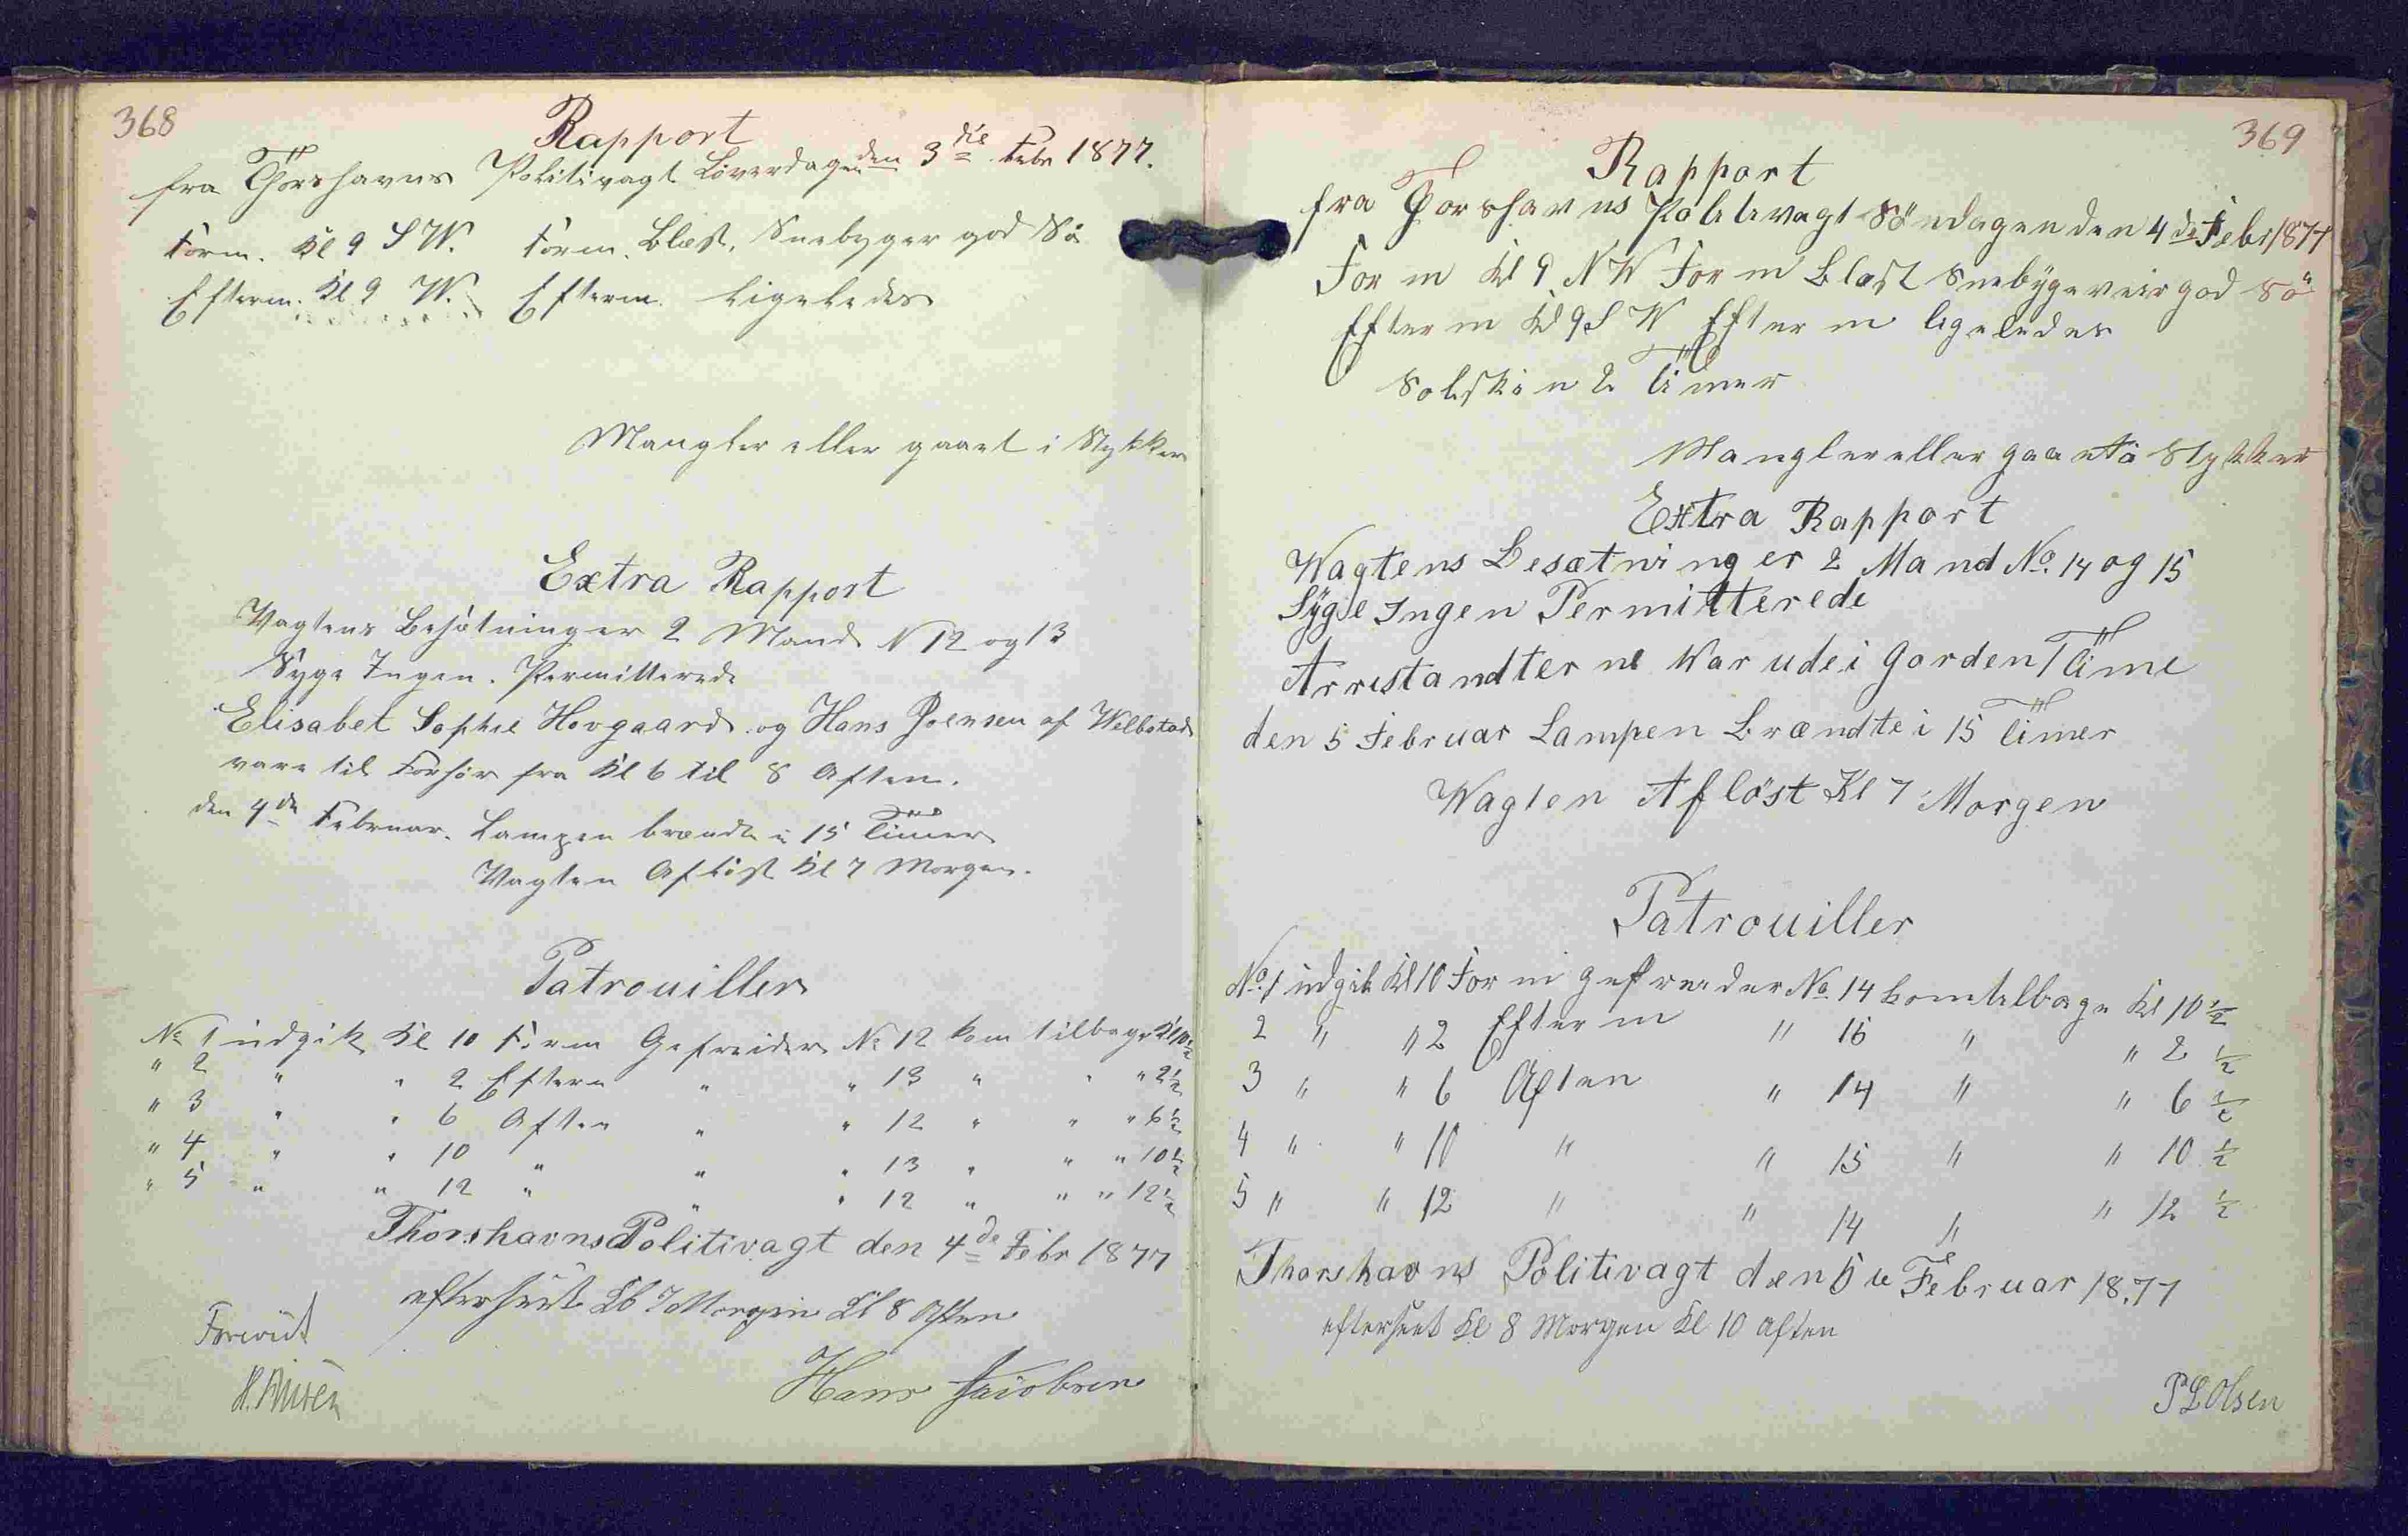 368
Rapport
fra Thorshavns Politivagt Löverdagen den 3die Febr 1877.
Form. Kl 9 S W. Form. Blæst, Sneebyger god Sö
Efterm. Kl 9 W. Efterm. ligeledes
Mangler eller gaaet i Stykker
Extra Rapport
Vagtens Besätning er 2 Mand N 12 og 13
Syge Ingen. Permitterede
Elisabet Sophie Hovgaard og Hans Joensen af Welbestad
vare til Forhör fra Kl 6 til 8 Aften.
den 4de Februar. Lampen brændte i 15 Timer
Vagten Aflöst Kl 7 Morgen.
Patrouiller
No 1 udgik Kl 10 Form Gefreider No 12 kom tilbage Kl 10 1/2
" 2 " " 2 Efterm " " 13 " " " 2 1/2
" 3 " " 6 Aften " " 12 " " " 6 1/2
" 4 " " 10 " " " 13 " " " 10 1/2
" 5 " " 12 " " " 12 " " " 12 1/2
Thorshavns Politivagt den 4de Febr 1877
efterseet Kl 7 Morgen Kl 8 Aften
Forevist
Hans Jacobsen
369
Rapport
fra Thorshavns Politivagt Söndagen den 4de Febr 1877
Form Kl 9 N W Form Blæst Sneebygeveir god Sö
Efterm Kl 9 S W Efterm ligeledes
Solskin 2 Timer
Mangler eller gaaet i Stykker
Extra Rapport
Wagtens Besætning er 2 Mand No. 14 og 15
Syge Ingen Permitterede
Arrestandterne War ude i Gorden 1 Time
den 5 Februar Lampen Brændte i 15 Timer
Wagten Aflöst Kl 7 Morgen
Patrouiller
No. 1 udgik Kl 10 Form gefreider No. 14 kom telbage Kl 10 1/2
2 " " 2 Efterm " 15 " " 2 1/2
3 " " 6 Aften " 14 " " 6 1/2
4 " " 10 " " 15 " " 10 1/2
5 " " 12 " " 14 " " 12 1/2
Thorshavns Politivagt den 5te Februar 18.77
efterseet Kl 8 Morgen Kl 10 Aften
P L Olsen